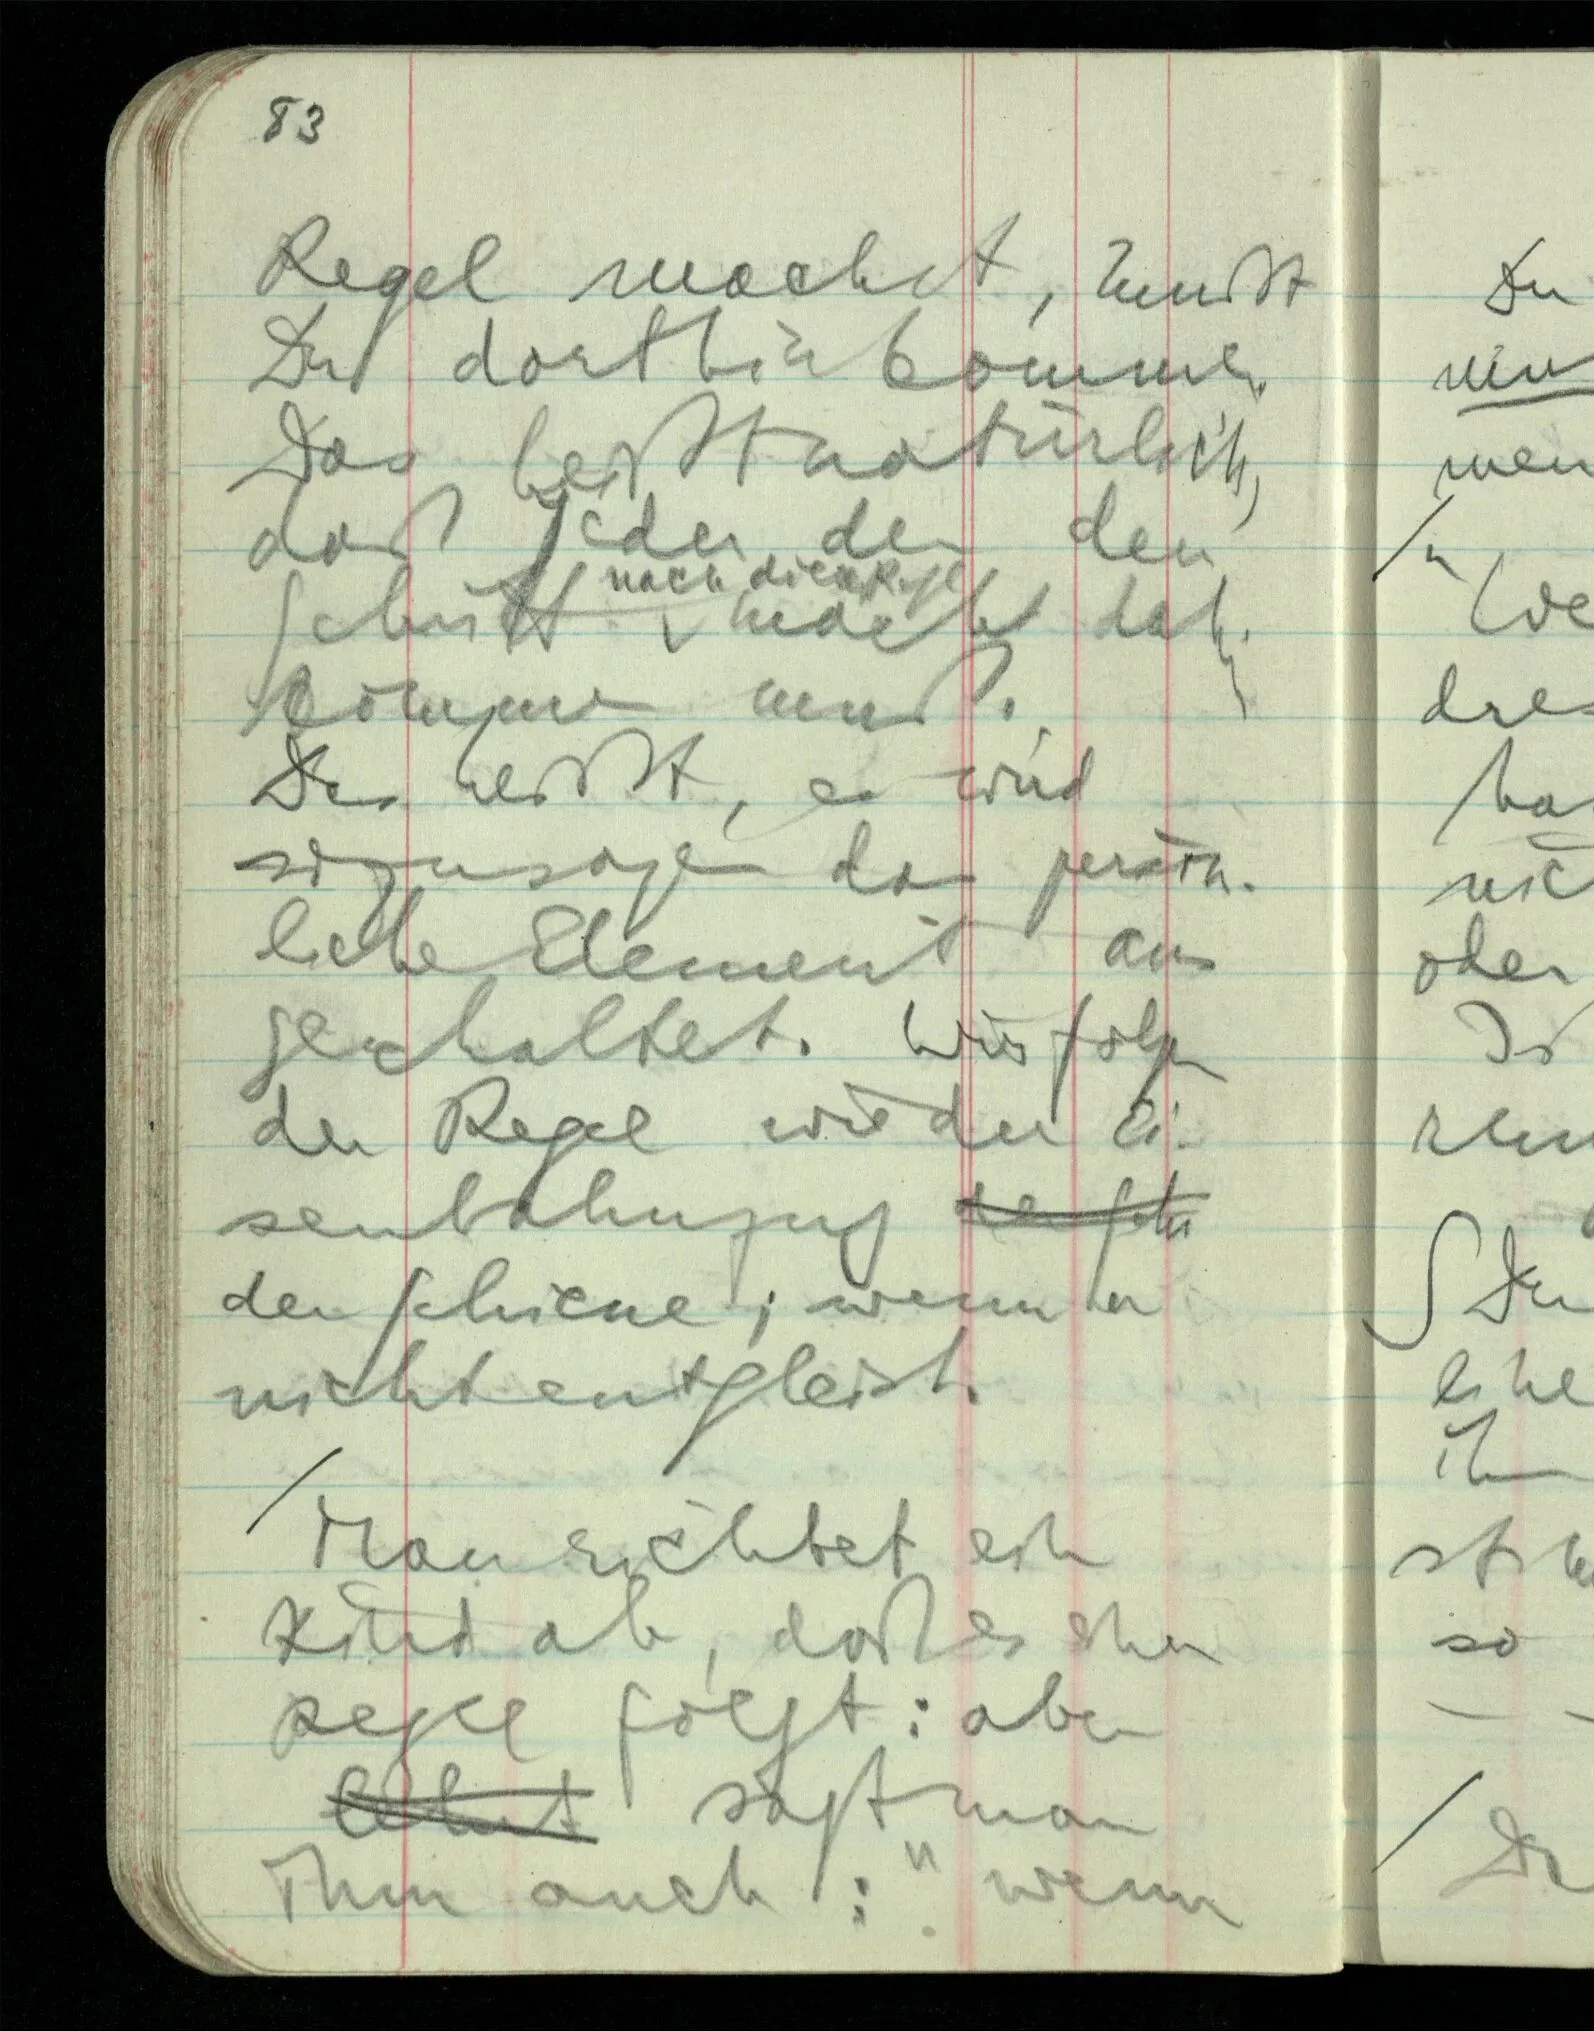 83
Regel machst, mußt
Du dorthin kommen.
Das heißt natürlich,
daß jeder der den
nach dieser Regel
Schritt macht dahin
kommen muß.
Das heißt, es wird
sozusagen das persön-
liche Element aus
geschaltet. Wir folgen
der Regel wie der Ei-
senbahnzug
der Schiene; wenn er
nicht entgleist.
/
Man richtet ein
Kind ab, daß es einer
Regel folgt: aber
lehrt sagt man
ihm auch: "wenn
Du
nun
wen
/
We
dres
ha
nic
oder
Is
∫ Du
eine
ihn
so
/